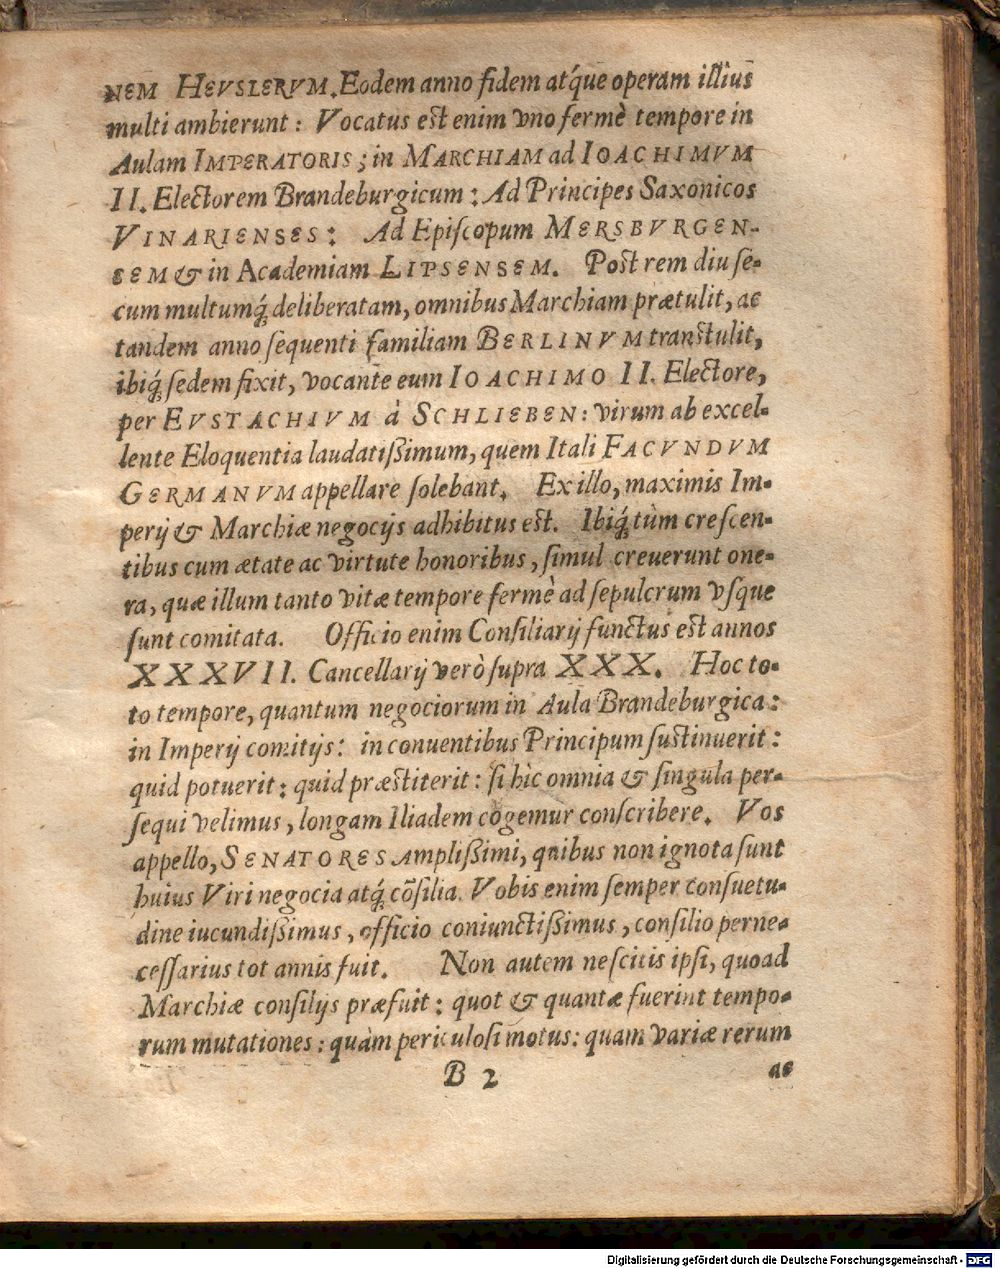 NEM HEVSLERVM. Eodem anno fidem atq́ue operam illius
multi ambierunt: Vocatus est enim vno fermè tempore in
Aulam IMPERATORIS; in MARCHIAM ad IOACHIMVM
II. Electorem Brandeburgicum: Ad Principes Saxonicos
VINARIENSES: Ad Episcopum MERSBVRGEN-
SEM & in Academiam LIPSENSEM. Post rem diu se-
cum multumq́; deliberatam, omnibus Marchiam prætulit, ac
tandem anno sequenti familiam BERLINVM transtulit,
ibiq́; sedem fixit, vocante eum IOACHIMO II. Electore,
per EVSTACHIVM à SCHLIEBEN: virum ab excel-
lente Eloquentia laudatißimum, quem Itali FACVNDVM
GERMANVM appellare solebant. Ex illo, maximis Im-
perij & Marchiæ negocijs adhibitus est. Ibiq́; tùm crescen-
tibus cum ætate ac virtute honoribus, simul creuerunt one-
ra, quæ illum tanto vitæ tempore fermè ad sepulcrum vsq́ue
sunt comitata. Officio enim Consiliarij functus est annos
XXXVII. Cancellarij verò supra XXX. Hoc to-
to tempore, quantum negociorum in Aula Brandeburgica:
in Imperij comitijs: in conuentibus Principum sustinuerit:
quid potuerit: quid præstiterit: si hìc omnia & singula per-
sequi velimus, longam Iliadem cogemur conscribere. Vos
appello, SENATORES Amplißimi, quibus non ignota sunt
huius Viri negocia atq́; cõsilia. Vobis enim semper consuetu-
dine iucundißimus, officio coniunctißimus, consilio perne-
cessarius tot annis fuit. Non autem nescitis ipsi, quoad
Marchiæ consilijs præfuit: quot & quantæ fuerint tempo-
rum mutationes: quàm periculosi motus: quam variæ rerum
B 2 ac
Digitalisierung gefördert durch die Deutsche Forschungsgemeinschaft - DFG